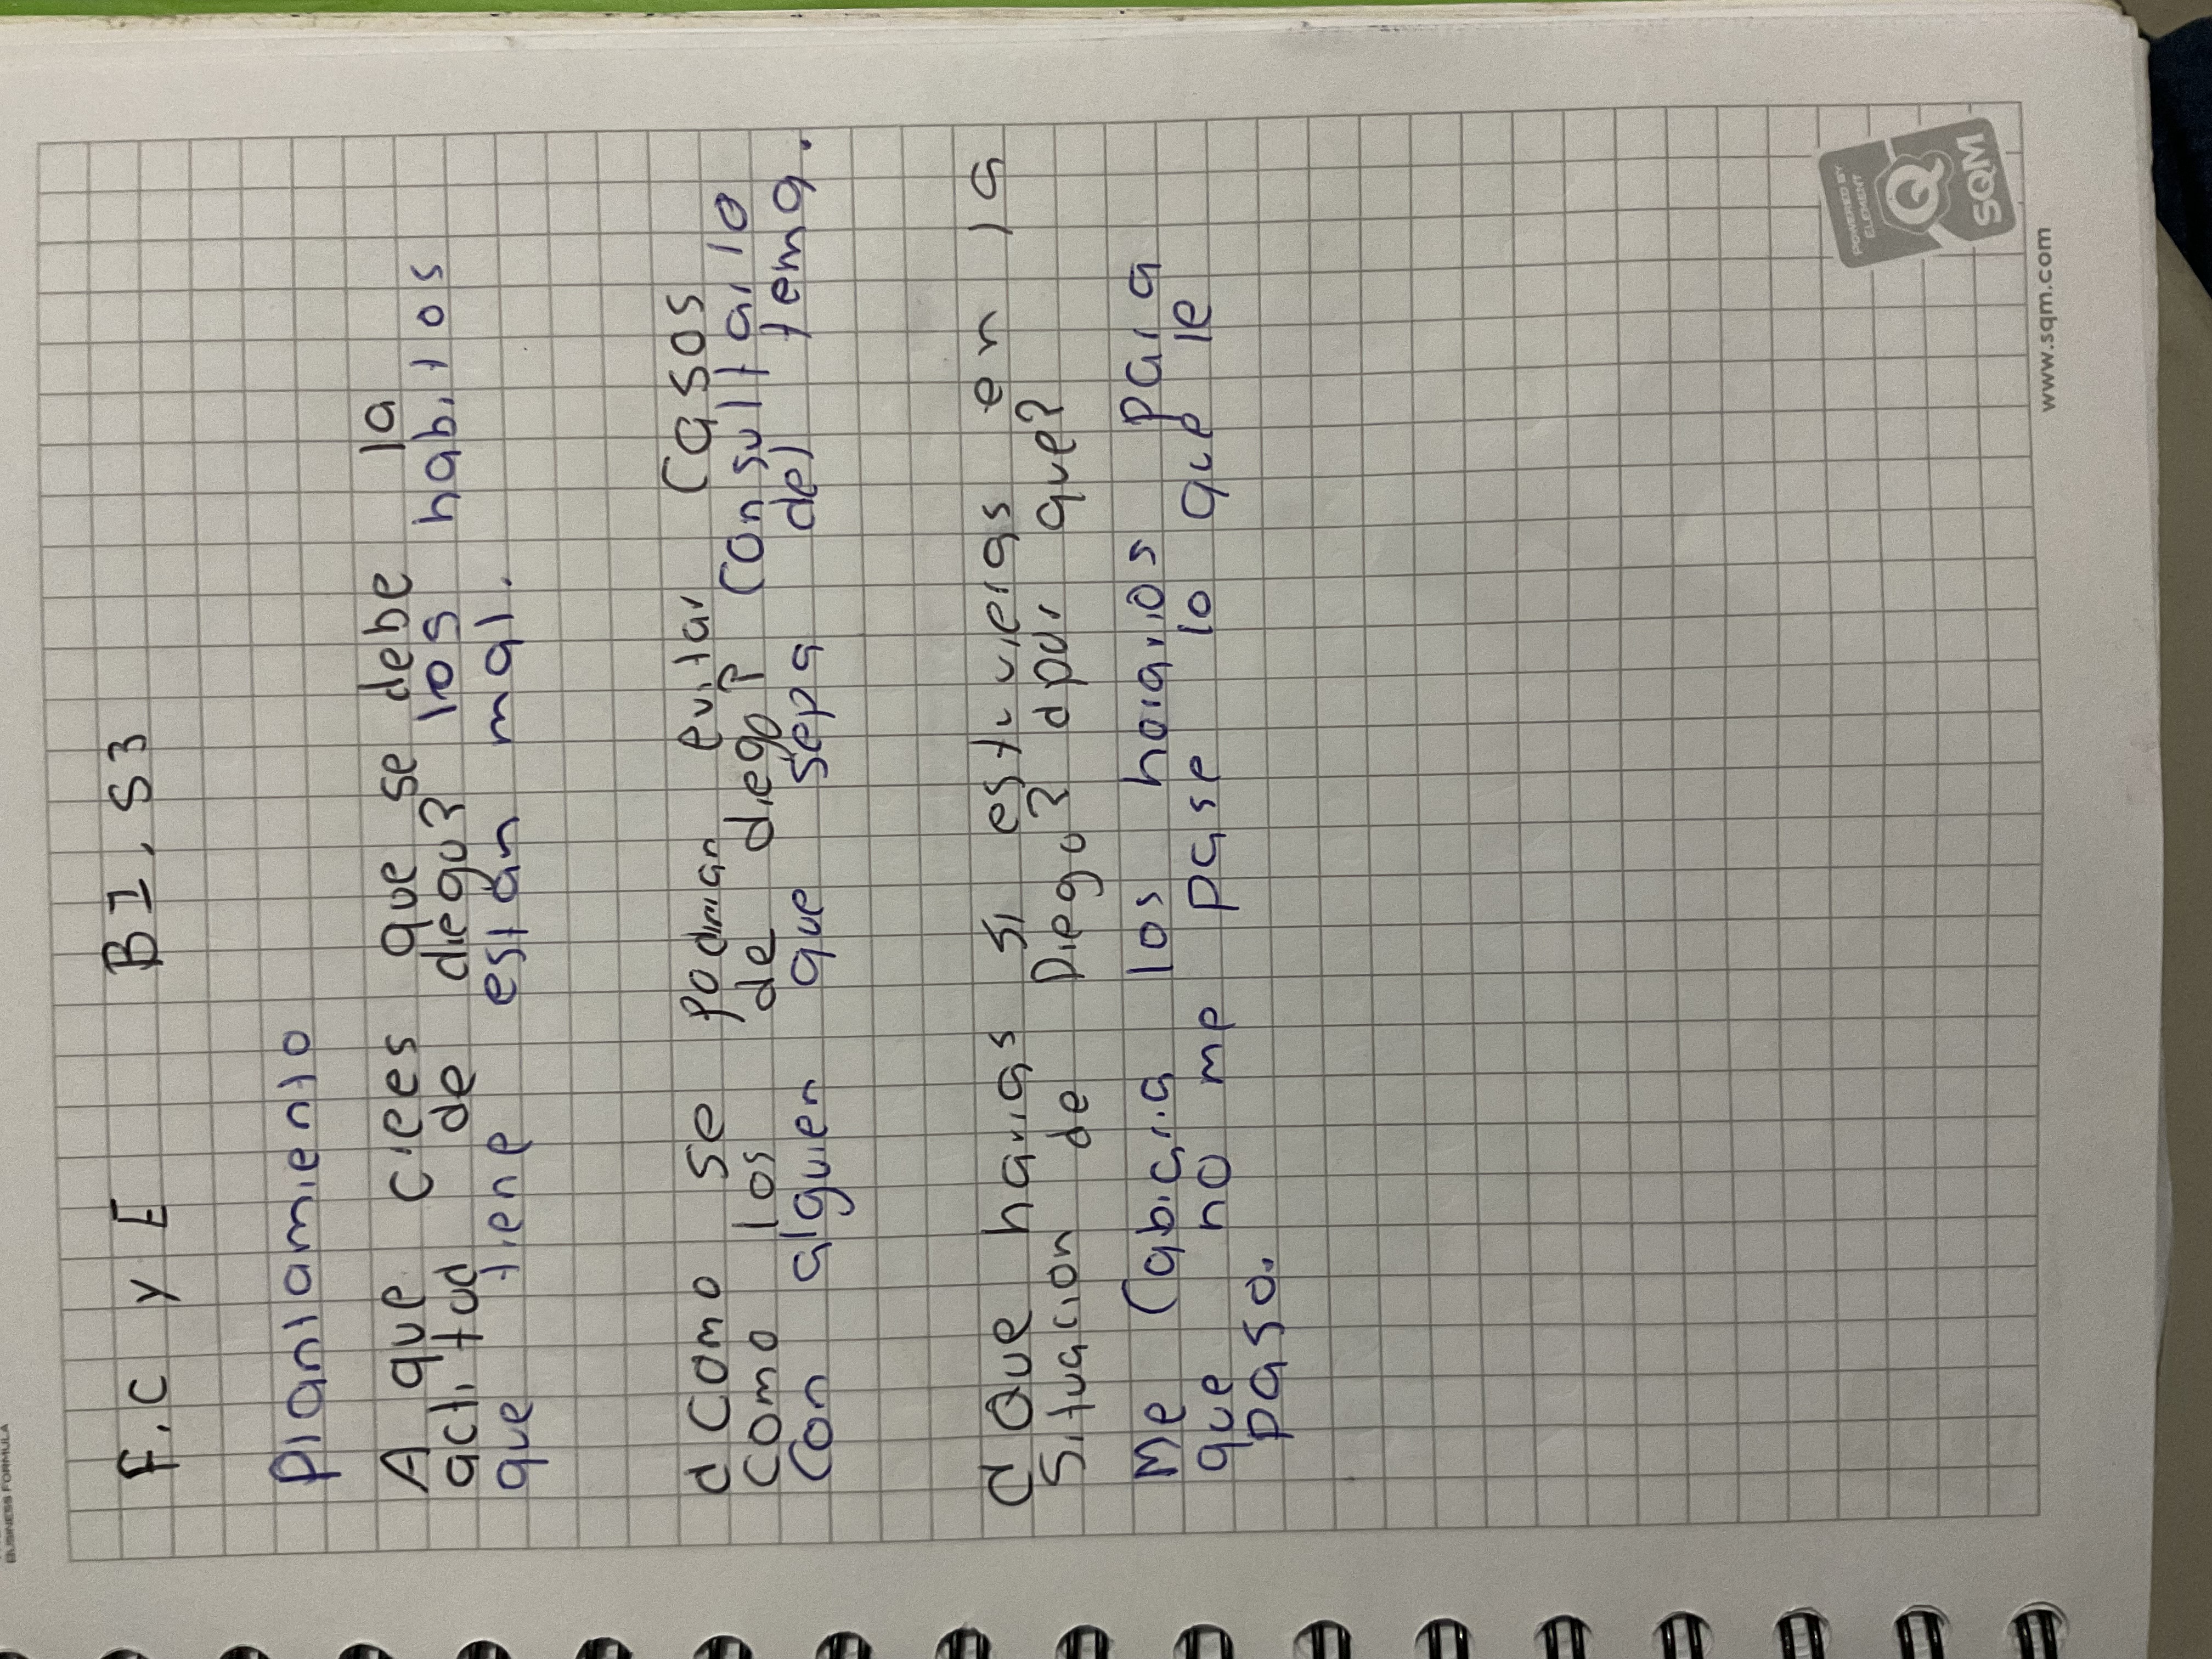 F.C y E B1, S3
Planteamiento
A que crees que se debe la
actitud de diego? los habitos
que tiene estan mal.
¿Como se podrian evitar casos
como los de diego? Consultarlo
con alguien que sepa del tema.
¿Que harias si estuvieras en la
Situacion de Diego? ¿por que?
Me cabiaria los horarios para
que no me pase lo que le
paso.
POWERED BY
ELEMENT
Q
SQM
www.sqm.com
BUSINESS FORMULA